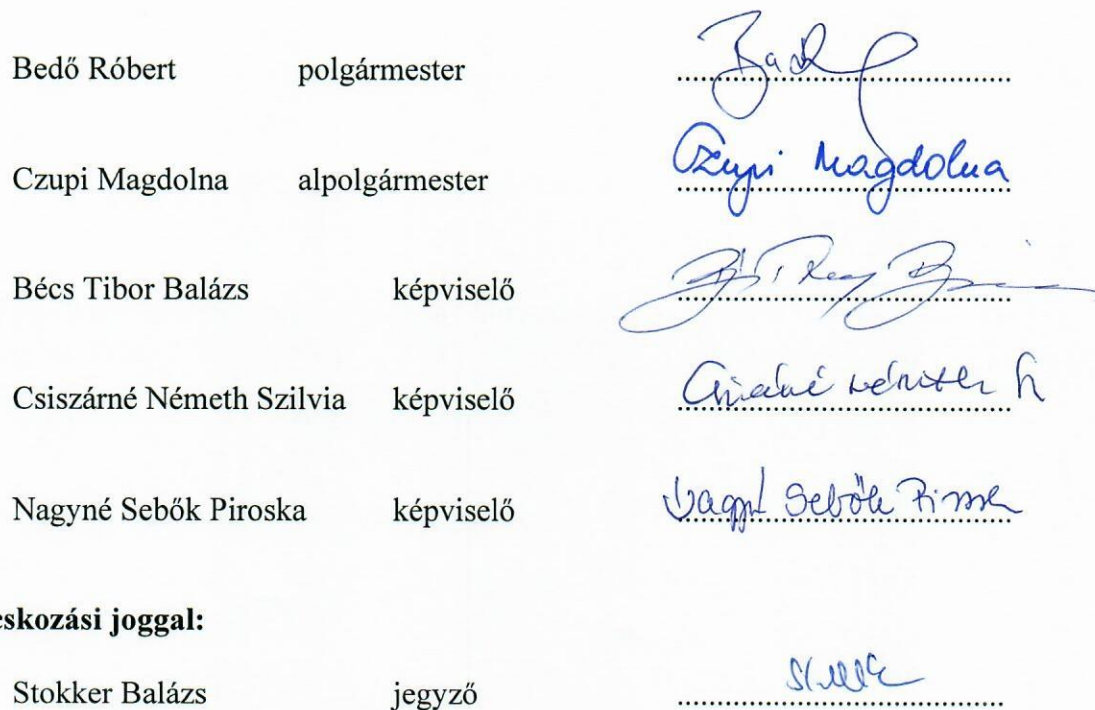 Bedő Róbert polgármester
Czupi Magdolna alpolgármester Czupi Magdolna
Bécs Tibor Balázs képviselő
Csiszárné Németh Szilvia képviselő
Nagyné Sebők Piroska képviselő Nagyné Sebők
eskozási joggal:
Stokker Balázs jegyző